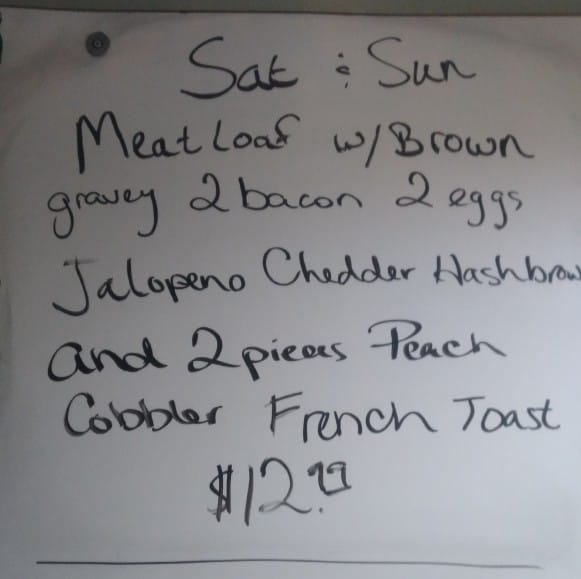 Sat & Sun
Meatloaf w/Brown
gravey 2 bacon 2 eggs
Jalopeno Chedder Hashbrow
and 2 pieces Peach
Cobbler French Toast
$12.99